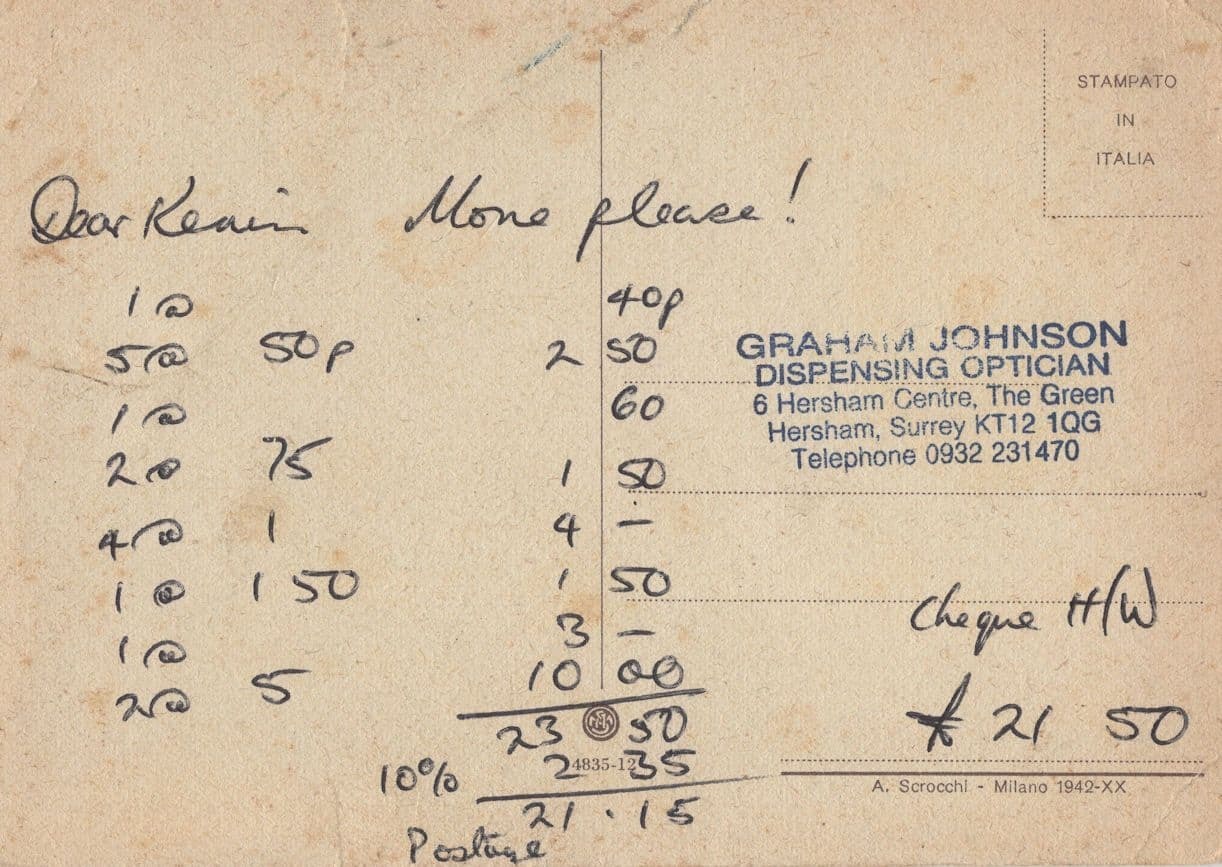 STAMPATO
IN
ITALIA
Dear Kevin More please!
1 @ 40p
5 @ 50p 2 50
1 @ 60
2 @ 75 1 50
4 @ 1 4 —
1 @ 1 50 1 50
1 @ 3 —
2 @ 5 10 00
23 50
10% 2 35
21 . 15
Postage
4835-12
GRAHAM JOHNSON
DISPENSING OPTICIAN
6 Hersham Centre, The Green
Hersham, Surrey KT12 1QG
Telephone 0932 231470
Cheque H/W
£ 21 50
A. Scrocchi - Milano 1942-XX